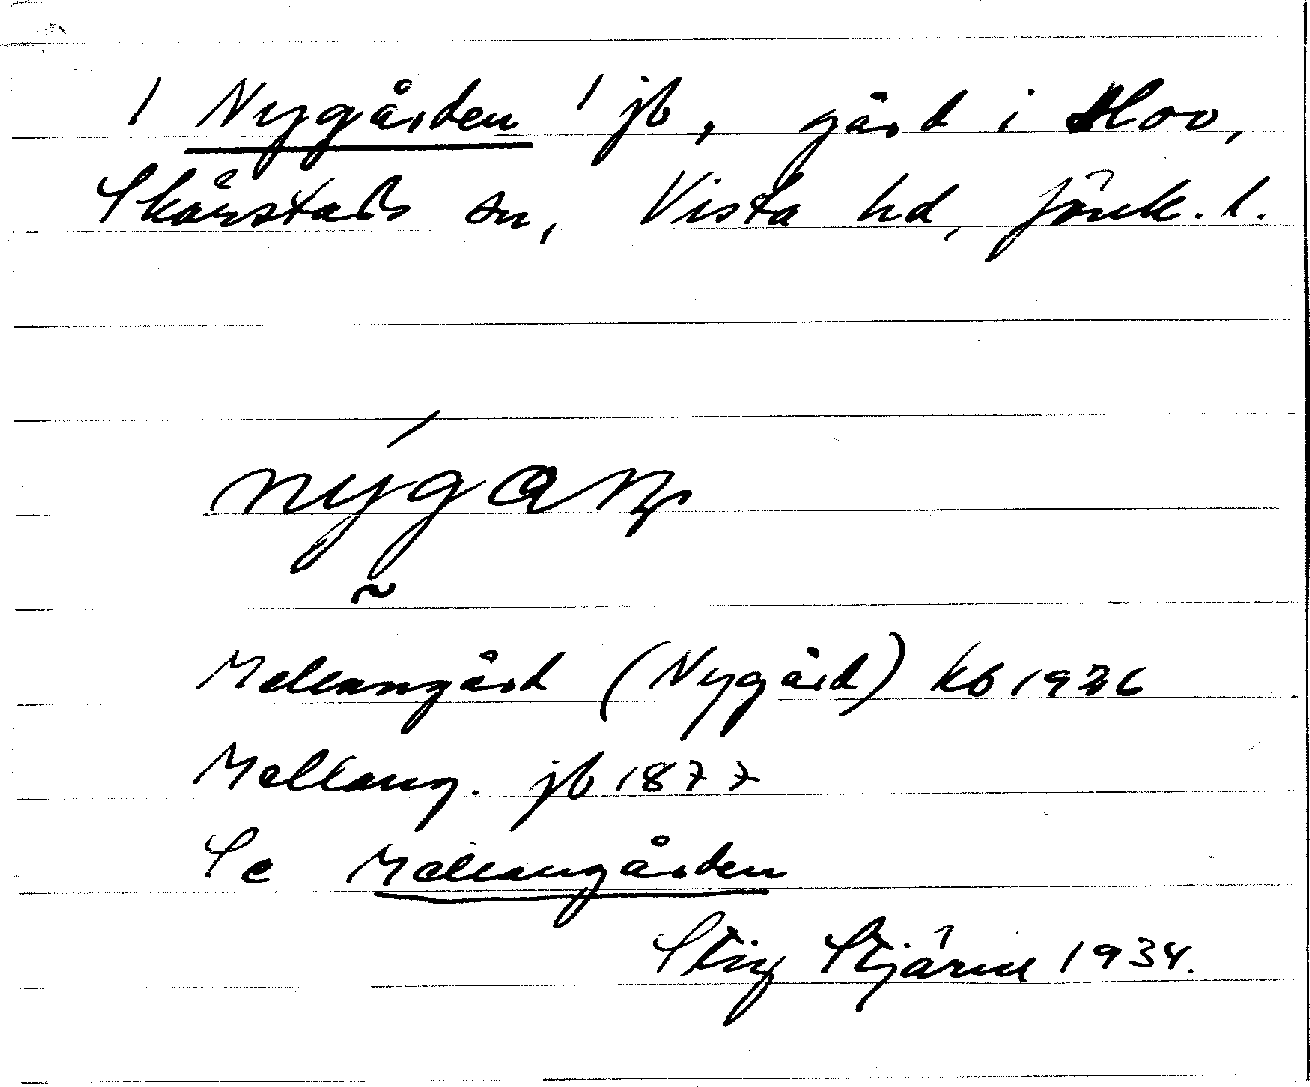 / Nygården / jb, gård i Hov,
Skärstads sn, Vista hd, Jönk. l.
nýgan
Mellangård (Nygård) kb 1926
Mellang. jb 1877
Se Mellangården
Stig Stjärne 1934.